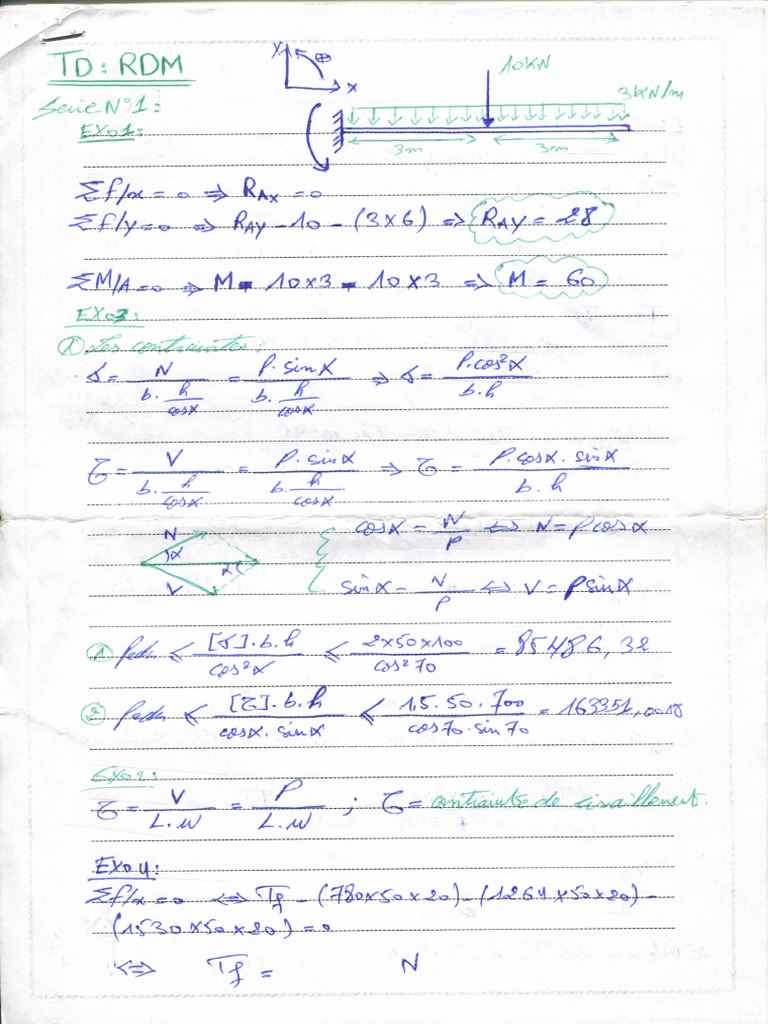 TD: RDM
Serie N°1:
EXO1:
y
⊕
x
10KN
3KN/m
3m
3m
Σf/x = 0 ⇒ R_AX = 0
Σf/y = 0 ⇒ R_AY - 10 - (3×6) ⇒ R_AY = 28
ΣM/A = 0 ⇒ M - 10×3 - 10×3 ⇒ M = 60
EXO3:
① Les contraintes:
σ = N / (b. h/cosα) = P. sinα / (b. h/cosα) ⇒ σ = P.cos²α / b.h
τ = V / (b. h/cosα) = P. sinα / (b. h/cosα) ⇒ τ = P.cosα. sinα / b.h
N
α
α
V
cosα = N/P ⇔ N = P cosα
sinα = N/P ⇔ V = P sinα
① Padm ≤ [σ].b.h / cos²α ≤ 2×50×100 / cos²70 = 85486,32
② Padm ≤ [τ].b.h / cosα. sinα ≤ 1,5.50.700 / cos70.sin70 = 163351,0018
τ = V / L.w = P / L.w ; τ = contrainte de cisaillement.
EXO4:
Σf/x = 0 ⇔ Tf - (780×50×20) - (1264×50×20) -
(1530×50×20) = 0
⇔ Tf = N